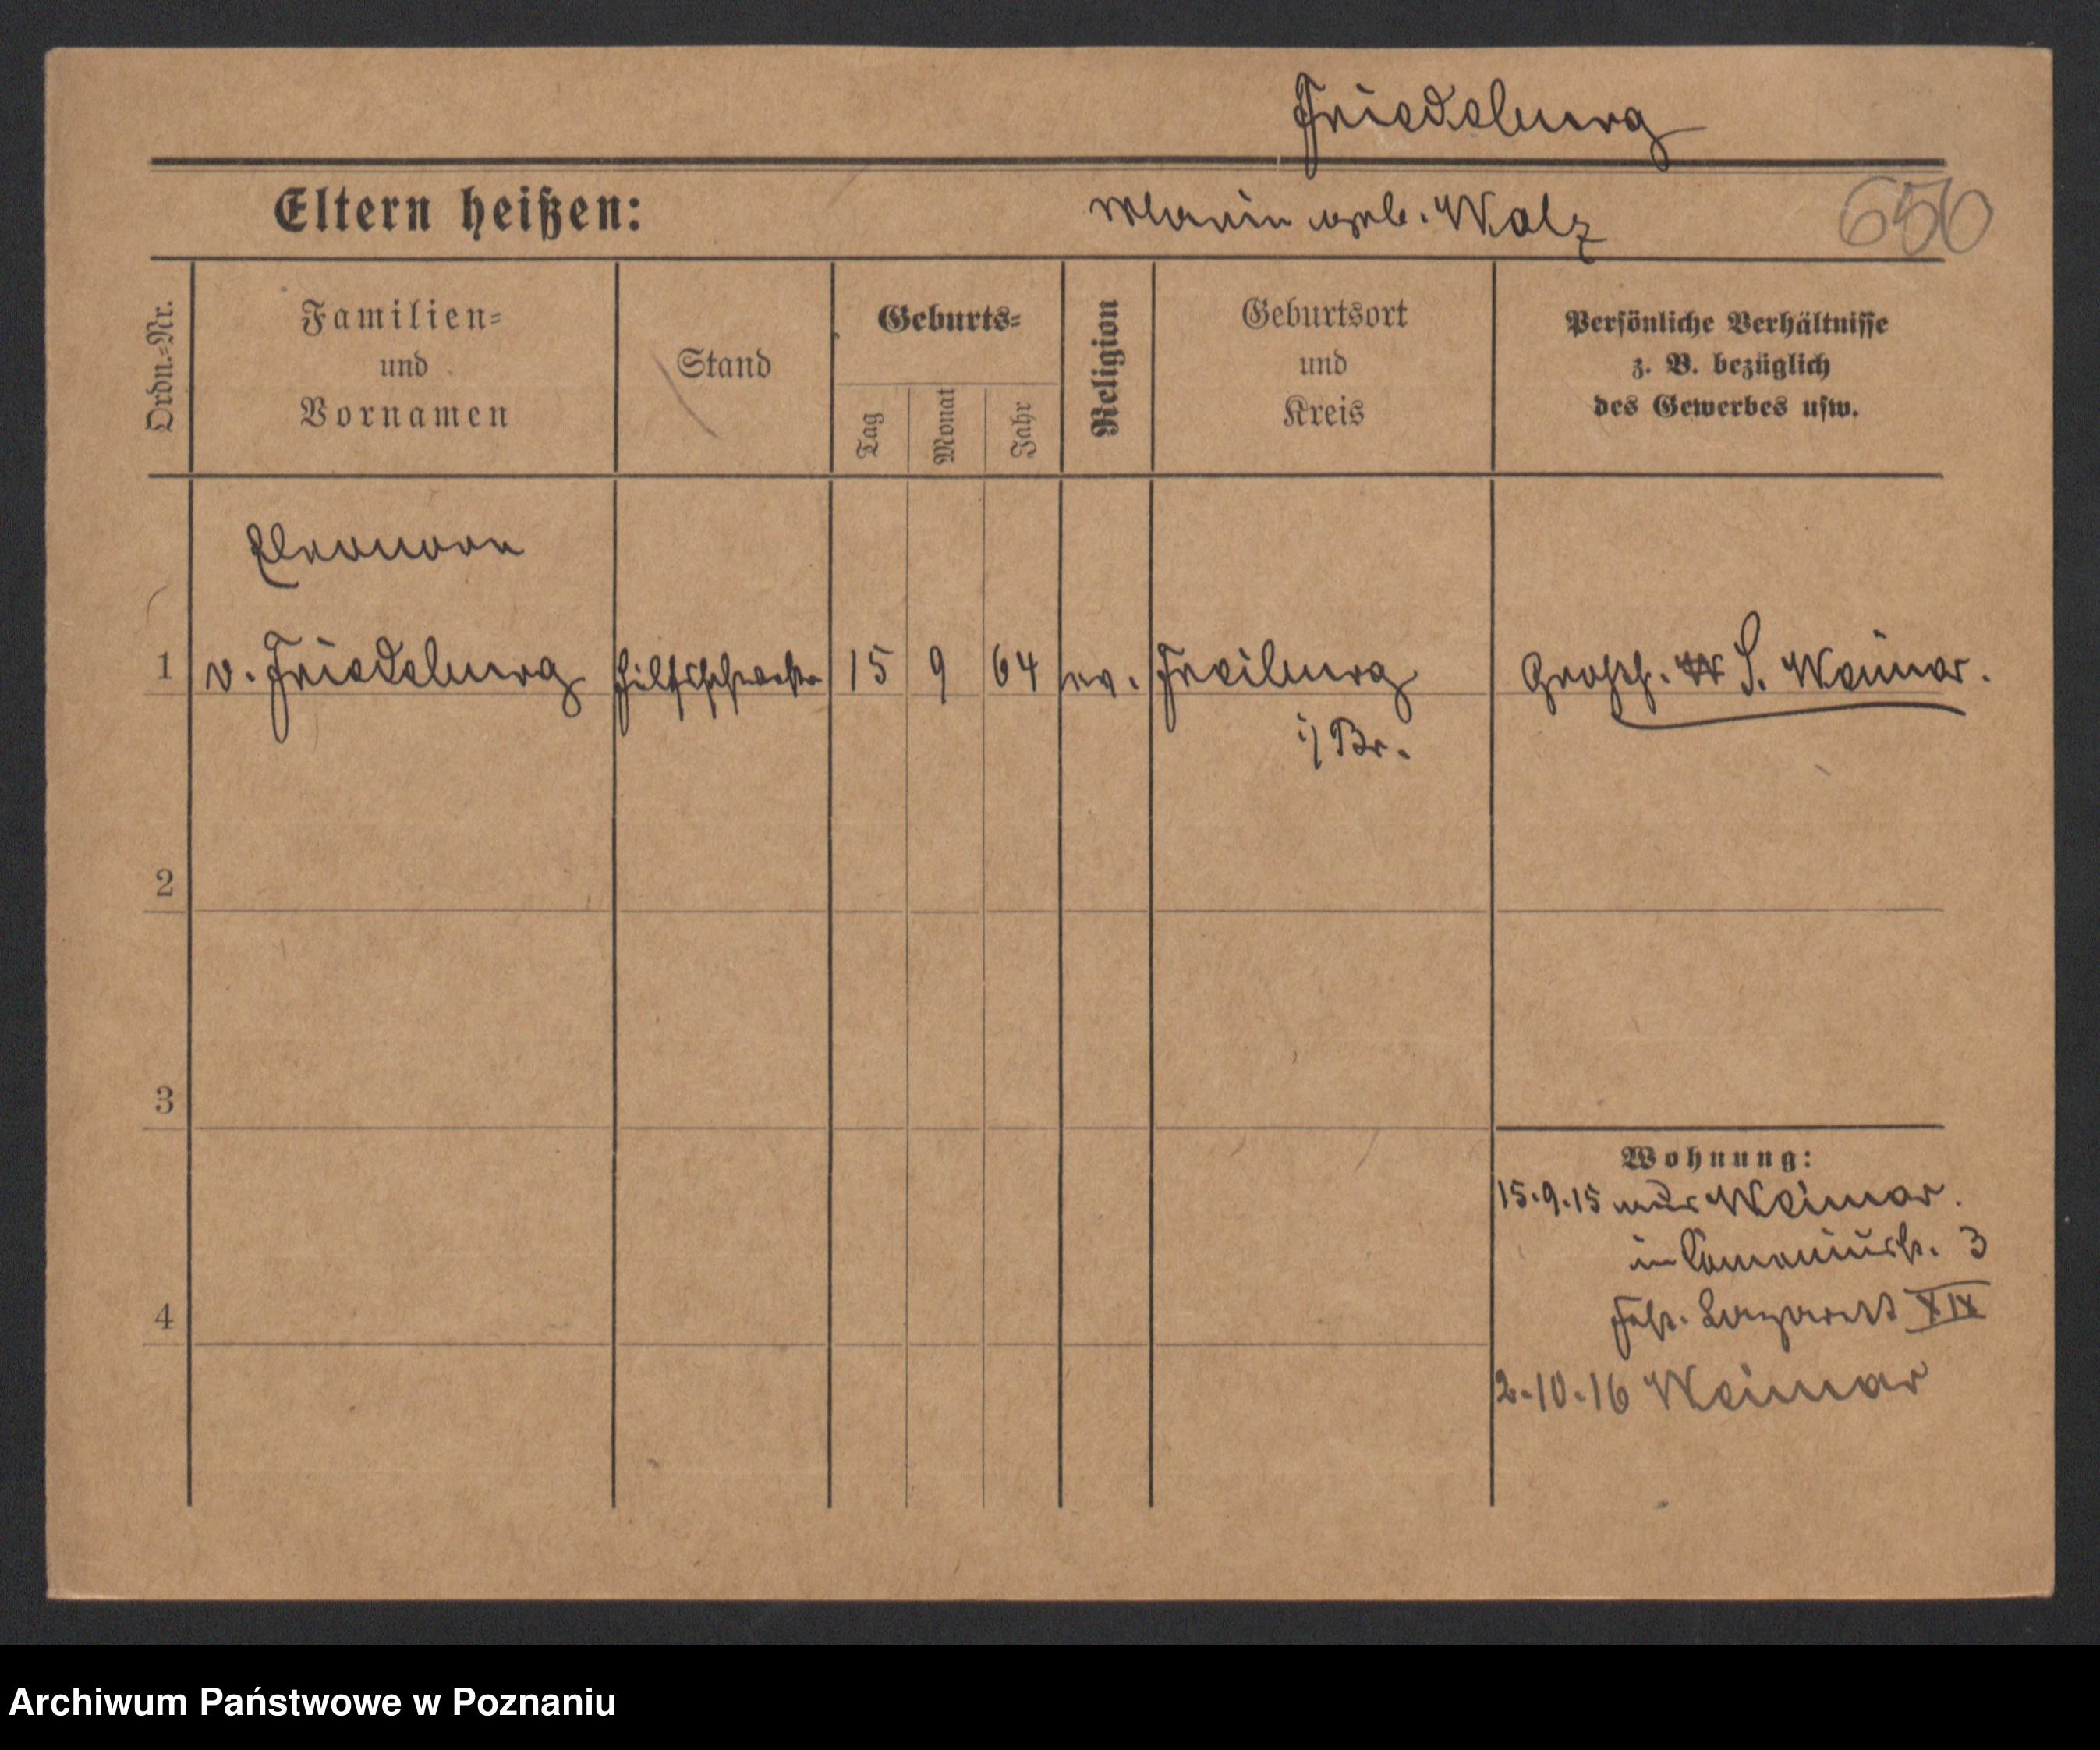 Friedeburg
Eltern heißen:
Marie geb. Walz
650
Ordn.=Nr.
Familien=
und
Vornamen
Stand
Geburts=
Tag
Monat
Jahr
Religion
Geburtsort
und
Kreis
Persönliche Verhältnisse
z. B. bezüglich
des Gewerbes usw.
Eleonore
1 v. Friedeburg Hilfsschwester 15 9 64 ev. Freiburg Grossh. S. Weimar.
i/Br.
2
3
Wohnung:
15.9.15 aus Weimar.
in Comeniusstr. 3
4
Fest. Lazarett XIX
2.10.16 Weimar
Archiwum Państwowe w Poznaniu